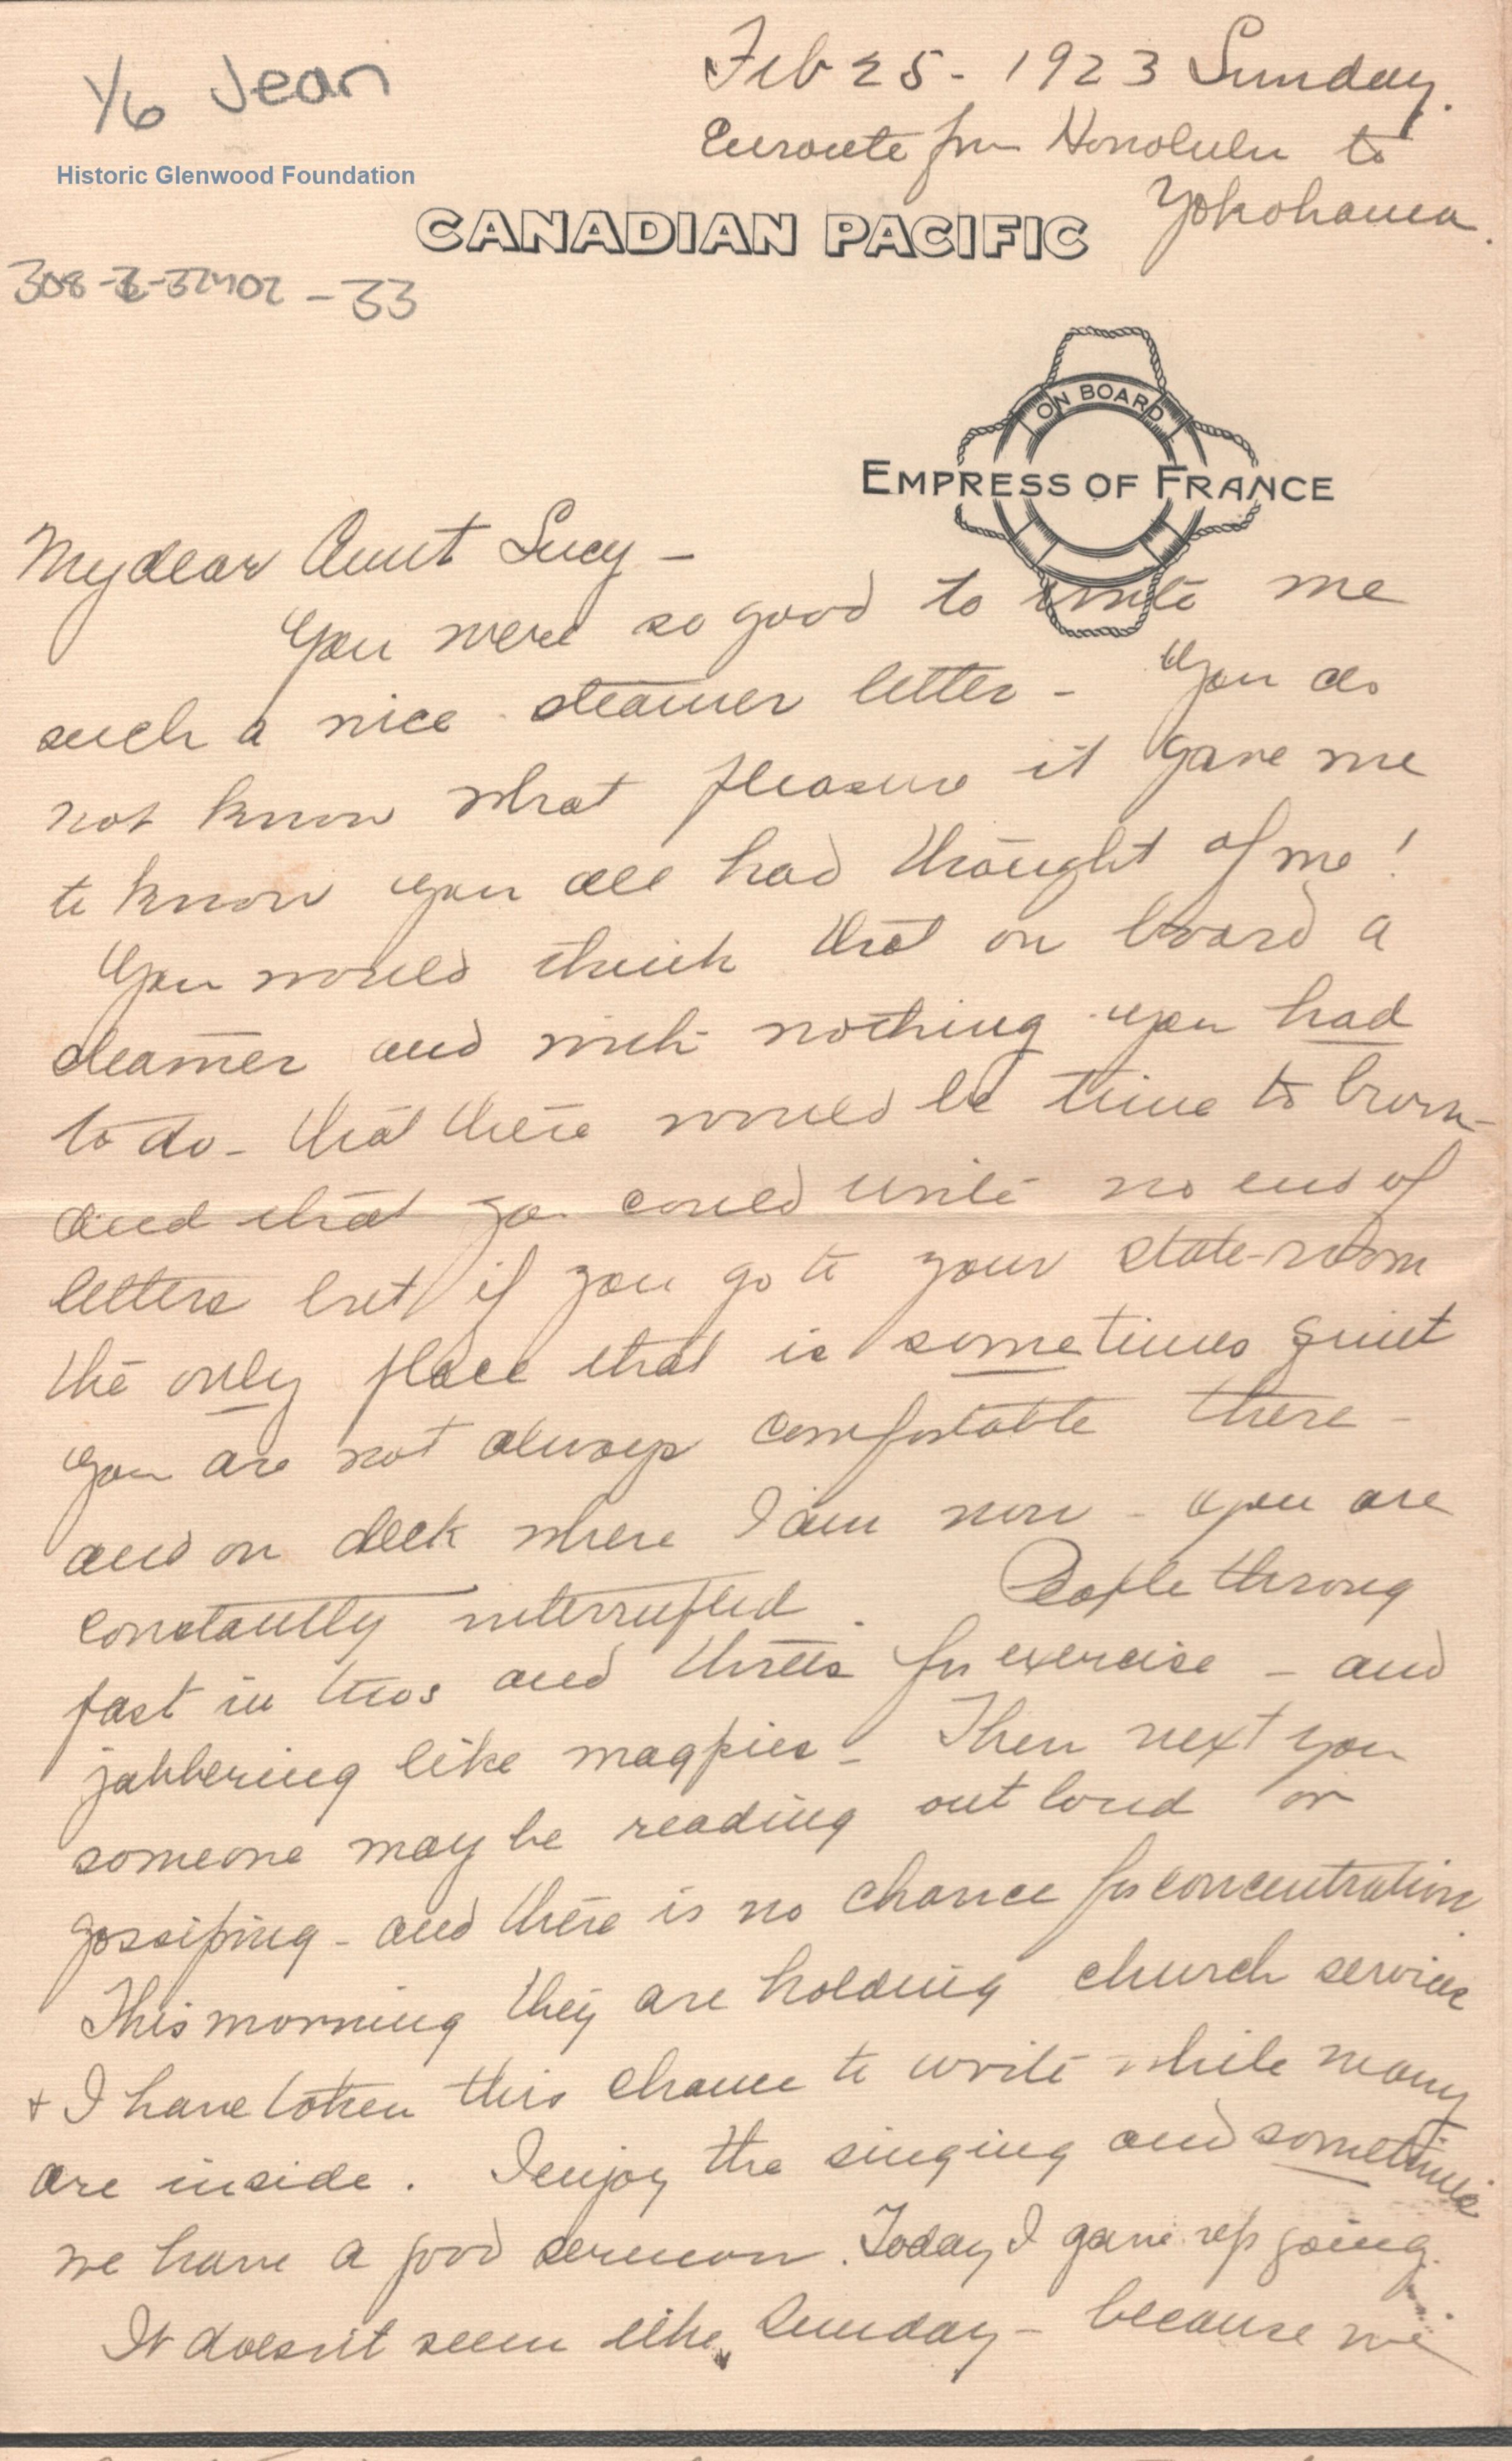 1/6 Jean
Feb 25 - 1923 Sunday.
Enroute from Honolulu to
Yokohama.
Historic Glenwood Foundation
CANADIAN PACIFIC
308-2-32402-33
ON BOARD
EMPRESS OF FRANCE
My dear Aunt Lucy -
You were so good to write me
such a nice steamer letter - You do
not know what pleasure it gave me
to know you all had thought of me!
You would think that on board a
steamer and with nothing you had
to do - that there would be time to burn -
and that you could write no end of
letters but if you go to your state-room
the only place that is sometimes quiet
you are not always comfortable there -
and on deck where I am now - you are
constantly interrupted. People throng
past in twos and threes for exercise - and
jabbering like magpies - Then next you
someone may be reading out loud or
gossiping - and there is no chance for concentration
This morning they are holding church services
+ I have taken this chance to write while many
are inside. I enjoy the singing and sometimes
we have a good sermon. Today I gave up going.
It doesn't seem like Sunday - because we